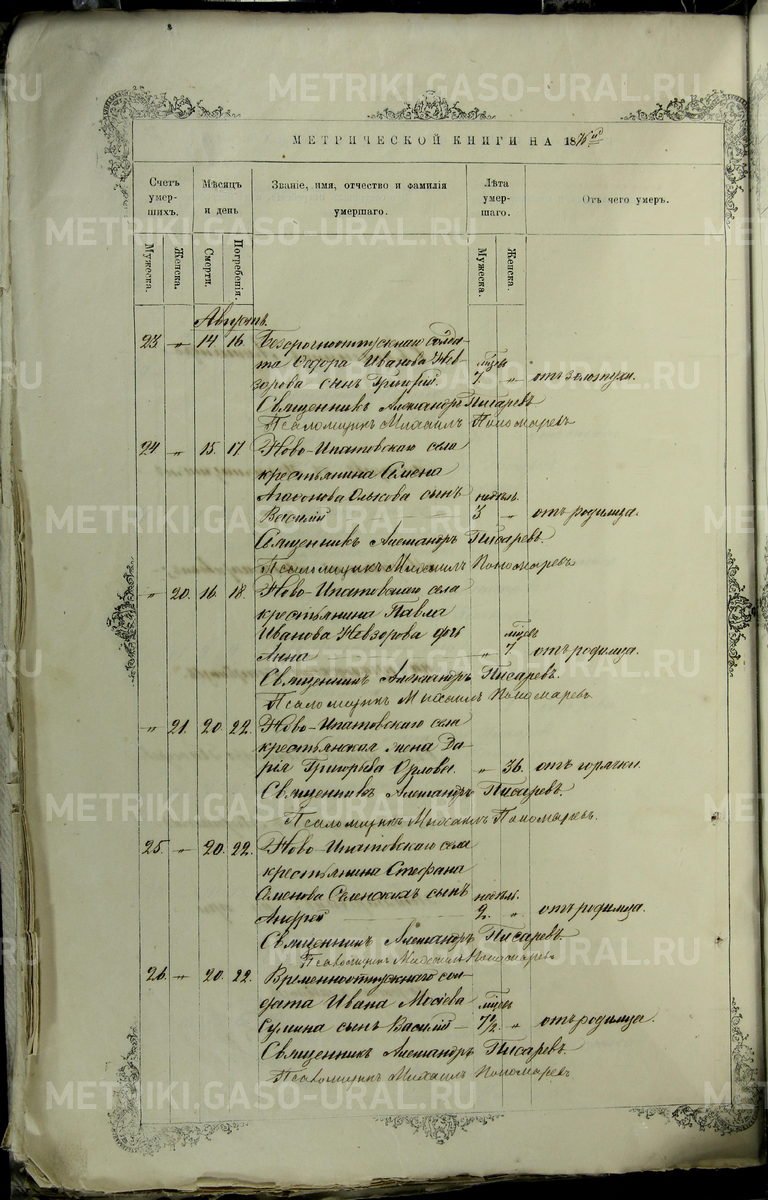 МЕТРИЧЕСКОЙ КНИГИ НА 1876 й
Счетъ умер- шихъ.
Мѣсяцъ и день
Званіе, имя, отчество и фамилія умершаго.
Лѣта умер- шаго.
Отъ чего умеръ.
Мужеска. Женска. Смерти. Погребенія. Мужеска. Женска.
Августъ.
23 „ 14 16. Безсрочноотпускнаго солда-
та Ѳедора Иванова Нев- мѣсец
зорова сынъ Григорій. 7 „ отъ золотухи.
Священникъ Александръ Писаревъ
Псаломщикъ Михаилъ Пономаревъ
24 „ 15. 17. Ново-Ипатовскаго села
крестьянина Семена
Агаѳонова сынъ недѣль
Василій 3 „ отъ родимца.
Священникъ Александръ Писаревъ.
Псаломщикъ Михаилъ Пономаревъ
„ 20. 16. 18. Ново-Ипатовскаго села
крестьянина Павла
Иванова Невзорова дчь мѣсец
Анна „ 7 отъ родимца.
Священникъ Александръ Писаревъ.
Псаломщикъ Михаилъ Пономаревъ
„ 21. 20. 22. Ново-Ипатовскаго села
крестьянская жена Да-
рія Григорьева Орлова. „ 36. отъ горячки.
Священникъ Александръ Писаревъ.
Псаломщикъ Михаилъ Пономаревъ.
25. „ 20. 22. Ново-Ипатовскаго села
крестьянина Стефана
Семенова Селенскихъ сынъ недѣль
Андрей 2. „ отъ родимца.
Священникъ Александръ Писаревъ.
Псаломщикъ Михаилъ Пономаревъ
26 „ 20. 22. Временноотпускнаго сол-
дата Ивана Мосіева мѣсец
Сулина сынъ Василій 7½. „ отъ родимца.
Священникъ Александръ Писаревъ.
Псаломщикъ Михаилъ Пономаревъ
METRIKI.GASO-URAL.RU